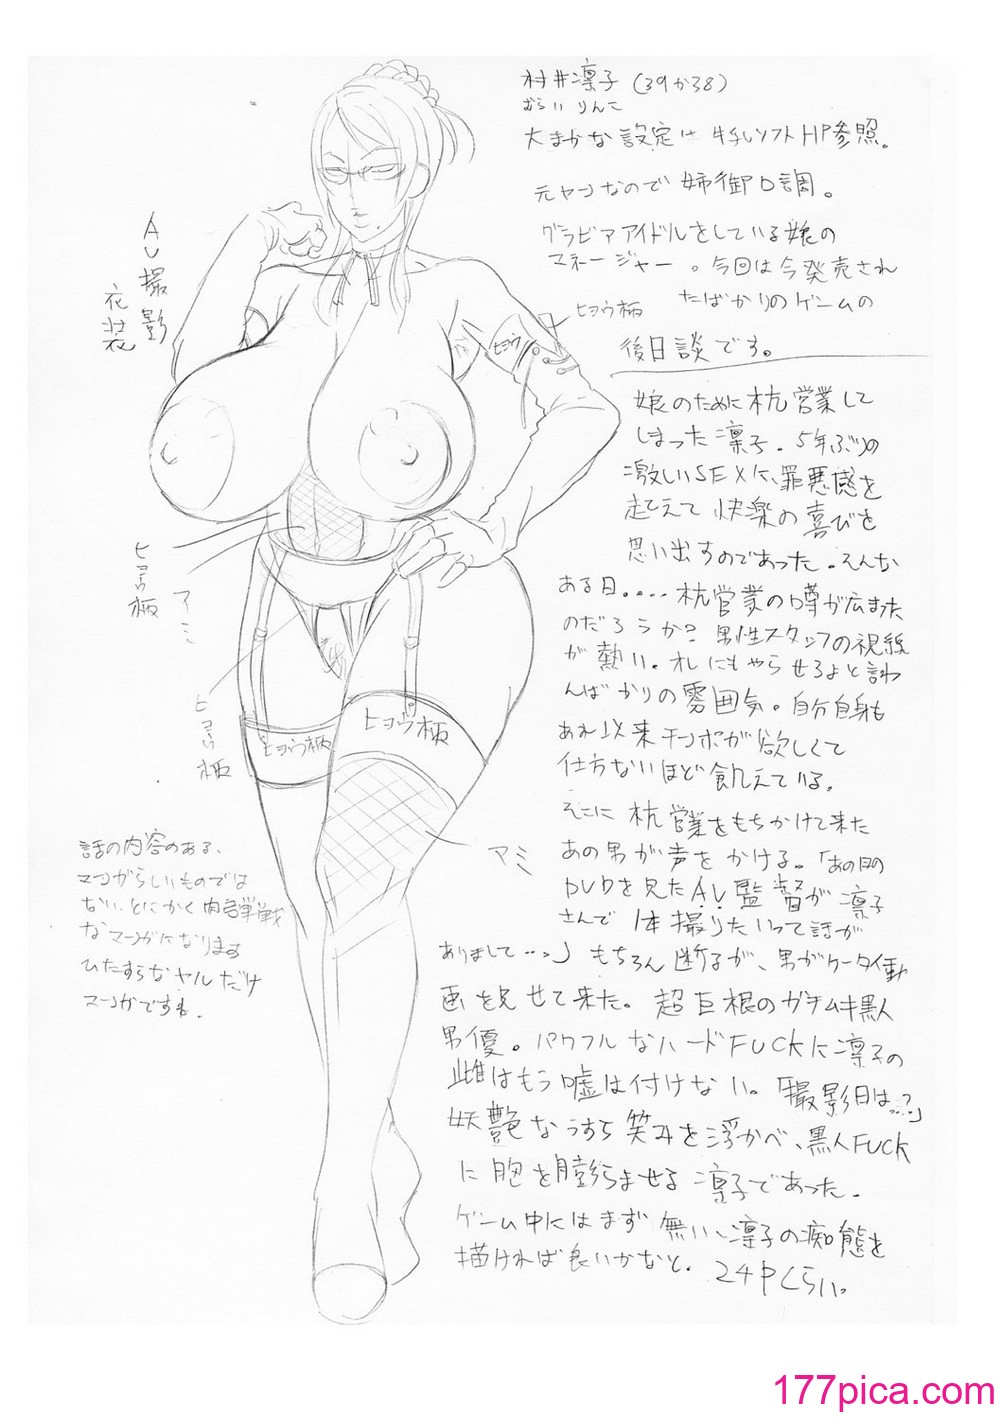 村井凛子(39か38)
むらい りんこ
大まかな設定は牛乳ソフトHP参照。
元ヤンなので姉御口調。
グラビアアイドルをしている娘の
マネージャー。今回は今発売され
たばかりのゲームの
後日談です。
娘のために枕営業して
しまった凛子。5年ぶりの
激しいSEXに、罪悪感を
超えて快楽の喜びを
思い出すのであった。そんな
ある日....枕営業の噂が広まった
のだろうか?男性スタッフの視線
が熱い。オレにもやらせろよと言わ
んばかりの雰囲気。自分自身も
あれ以来チンポが欲しくて
仕方ないほど飢えている。
そこに枕営業をもちかけて来た
あの男が声をかける。「あの時の
DVDを見たAV監督が凛子
さんで1本撮りたいって話が
ありまして…」もちろん断るが、男がケータイ動
画を見せて来た。超巨根のガチムキ黒人
男優。パワフルなハードFUCKに凛子の
雌はもう嘘は付けない。「撮影日は…?」
妖艶なうすら笑みを浮かべ、黒人FUCK
に胸を膨らませる凛子であった。
ゲーム中にはまず無い、凛子の痴態を
描ければ良いかなと。24Pくらい。
AV撮影
衣装
ヒョウ柄
ヒョウ
ヒョウ柄
アミ
ヒョウ柄
ヒョウ柄
ヒョウ柄
アミ
話の内容のある、
マンガらしいものでは
ない、とにかく肉弾戦
なマンガになります
ひたすらなヤルだけ
マンガですね。
177pica.com